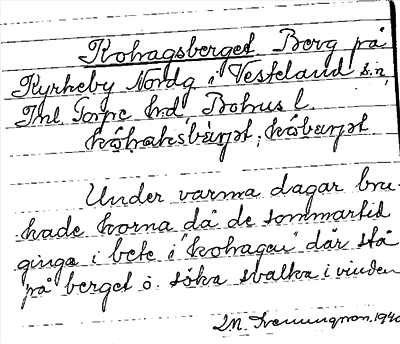 Kohagsberget Berg på
Kyrkeby Nordg i Vesteland s:n,
Inl. Torpe hd, Bohus l.
kóhaksbærjət; kóbærjət
Under varma dagar bru-
kade korna då de sommartid
gingo i bete i "kohagen" där stå
på berget o. söka svalka i vinden
1940